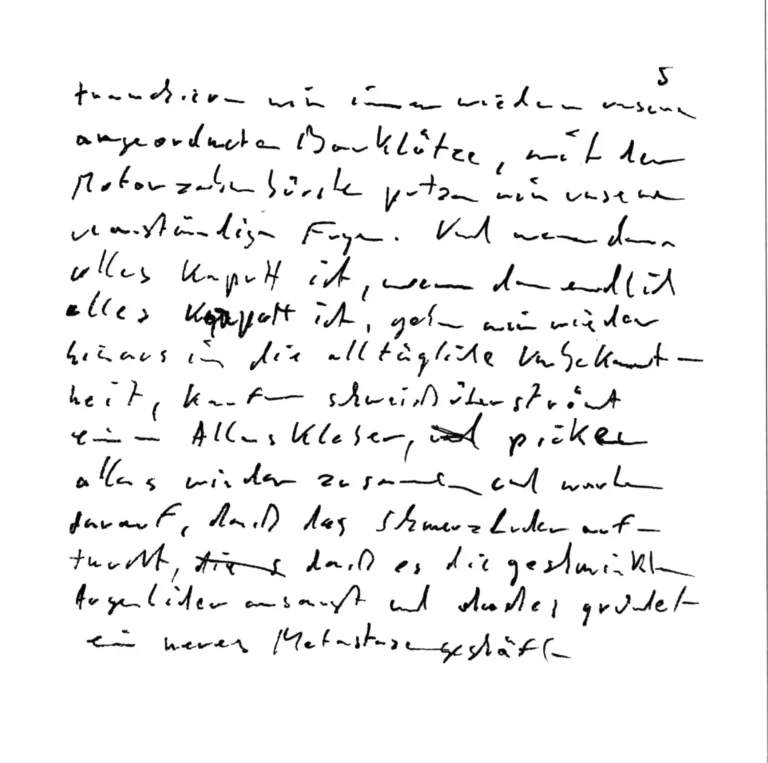 5
wir immer wieder unsere
angeordneten Bauklötze, mit der
Motorzahnbürste putzen wir unsere
verständigen Fugen. Und wenn dann
alles kaputt ist, wenn dann endlich
alles kaputt ist, gehn wir wieder
hinaus in die alltägliche Unbekannt-
heit, kaufen schweißüberströmt
einen Alleskleber, picken
alles wieder zusammen und warten
darauf, daß das auf-
taucht, daß es die geschminkten
Augenlider ansaugt und gründet
ein neues Metastasengeschäft